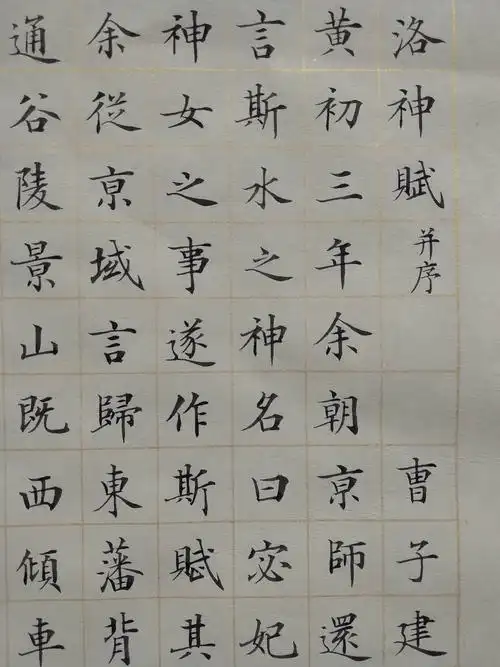 洛神賦 并序 曺子建
黄初三年余朝亰師還
言斯水之神名曰宓妃
神女之事遂作斯賦其
余從亰域言歸東藩背
通谷陵景山既西傾車